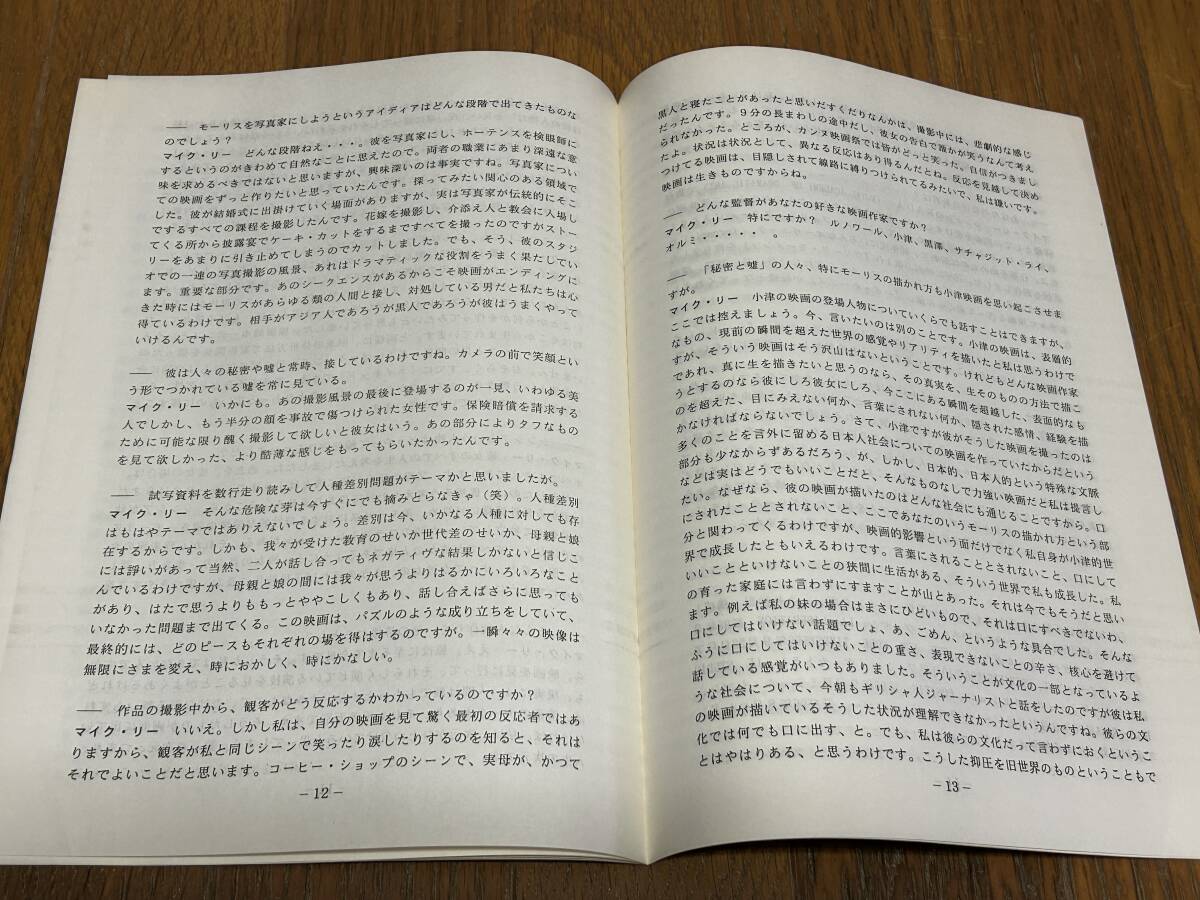 ―― モーリスを写真家にしようというアイディアはどんな段階で出てきたものな
のでしょう？
マイク・リー　どんな段階ねえ・・・。彼を写真家にし、ホーテンスを検眼師に
するというのがきわめて自然なことに思えたので。両者の職業にあまり深遠な意
味を求めるべきではないと思いますが、興味深いのは事実ですね。写真家につい
ての映画をずっと作りたいと思っていたんです。探ってみたい関心のある領域で
した。彼が結婚式に出掛けていく場面がありますが、実は写真家が伝統的にそこ
でするすべての課程を撮影したんです。花嫁を撮影し、介添え人と教会に入場し
てくる所から披露宴でケーキ・カットをするまですべてを撮ったのですがストー
リーをあまりに引き止めてしまうのでカットしました。でも、そう、彼のスタジ
オでの一連の写真撮影の風景、あれはドラマティックな役割をうまく果たしてい
ます。重要な部分です。あのシークエンスがあるからこそ映画がエンディングに
きた時にはモーリスがあらゆる類の人間と接し、対処している男だと私たちは心
得ているわけです。相手がアジア人であろうが黒人であろうが彼はうまくやって
いけるんです。
―― 彼は人々の秘密や嘘と常時、接しているわけですね。カメラの前で笑顔とい
う形でつかれている嘘を常に見ている。
マイク・リー　いかにも。あの撮影風景の最後に登場するのが一見、いわゆる美
人でしかし、もう半分の顔を事故で傷つけられた女性です。保険賠償を請求する
ために可能な限り醜く撮影して欲しいと彼女はいう。あの部分によりタフなもの
を見て欲しかった、より酷薄な感じをもってもらいたかったんです。
―― 試写資料を数行走り読みして人種差別問題がテーマかと思いましたが。
マイク・リー　そんな危険な芽は今すぐにでも摘みとらなきゃ（笑）。人種差別
はもはやテーマではありえないでしょう。差別は今、いかなる人種に対しても存
在するからです。しかも、我々が受けた教育のせいか世代差のせいか、母親と娘
には諍いがあって当然、二人が話し合ってもネガティヴな結果しかないと信じこ
んでいるわけですが、母親と娘の間には我々が思うよりはるかにいろいろなこと
があり、はたで思うよりももっとややこしくもあり、話し合えばさらに思っても
いなかった問題まで出てくる。この映画は、パズルのような成り立ちをしていて、
最終的には、どのピースもそれぞれの場を得はするのですが。一瞬々々の映像は
無限にさまを変え、時におかしく、時にかなしい。
―― 作品の撮影中から、観客がどう反応するかわかっているのですか？
マイク・リー　いいえ。しかし私は、自分の映画を見て驚く最初の反応者ではあ
りますから、観客が私と同じシーンで笑ったり涙したりするのを知ると、それは
それでよいことだと思います。コーヒー・ショップのシーンで、実母が、かつて
－12－
黒人と寝たことがあったと思いだすくだりなんかは、撮影中には、悲劇的な感じ
だったんです。９分の長まわしの途中だし、彼女の告白で誰かが笑うなんて考え
られなかった。ところが、カンヌ映画祭では皆がどっと笑った。自信がつきまし
たよ。状況は状況として、異なる反応はあり得るんだとね。反応を見越して決め
つけてる映画は、目隠しされて線路に縛りつけられてるみたいで、私は嫌いです。
映画は生きものですからね。
―― どんな監督があなたの好きな映画作家ですか？
マイク・リー　特にですか？　ルノワール、小津、黒澤、サチャジット・ライ、
オルミ・・・・・　。
―― 「秘密と嘘」の人々、特にモーリスの描かれ方も小津映画を思い起こさせま
すが。
マイク・リー　小津の映画の登場人物についていくらでも話すことはできますが、
ここでは控えましょう。今、言いたいのは別のことです。小津の映画は、表層的
なもの、現前の瞬間を超えた世界の感覚やリアリティを描いたと私は思うわけで
すが、そういう映画はそう沢山はないということです。けれどもどんな映画作家
であれ、真に生を描きたいと思うのなら、その真実を、生そのものの方法で描こ
うとするのなら彼にしろ彼女にしろ、今ここにある瞬間を超越した、表面的なも
のを超えた、目にみえない何か、言葉にされない何か、隠された感情、経験を描
かなければならないでしょう。さて、小津ですが彼がそうした映画を撮ったのは
多くのことを言外に留める日本人社会についての映画を作っていたからだという
部分も少なからずあるだろう、が、しかし、日本的、日本人的という特殊な文脈
などは実はどうでもいいことだと、そんなものなしで力強い映画だと私は提言し
たい。なぜなら、彼の映画が描いたのはどんな社会にも通じることですから。口
にされたこととされないこと、ここであなたのいうモーリスの描かれ方という部
分と関わってくるわけですが、映画的影響という面だけでなく私自身が小津的世
界で成長したともいえるわけです。言葉にされることとされないこと、口にして
いいことといけないことの狭間に生活がある、そういう世界で私も成長した。私
の育った家庭には言わずにすますことが山とあった。それは今でもそうだと思い
ます。例えば私の妹の場合はまさにひどいもので、それは口にすべきでないわ、
口にしてはいけない話題でしょ、あ、ごめん、というような具合でした。そんな
ふうに口にしてはいけないことの重さ、表現できないことの辛さ、核心を避けて
話している感覚がいつもありました。そういうことが文化の一部となっているよ
うな社会について、今朝もギリシャ人ジャーナリストと話をしたのですが彼は私
の映画が描いているそうした状況が理解できなかったというんですね。彼らの文
化では何でも口に出す、と。でも、私は彼らの文化だって言わずにおくというこ
とはやはりある、と思うわけです。こうした抑圧を旧世界のものということもで
－13－